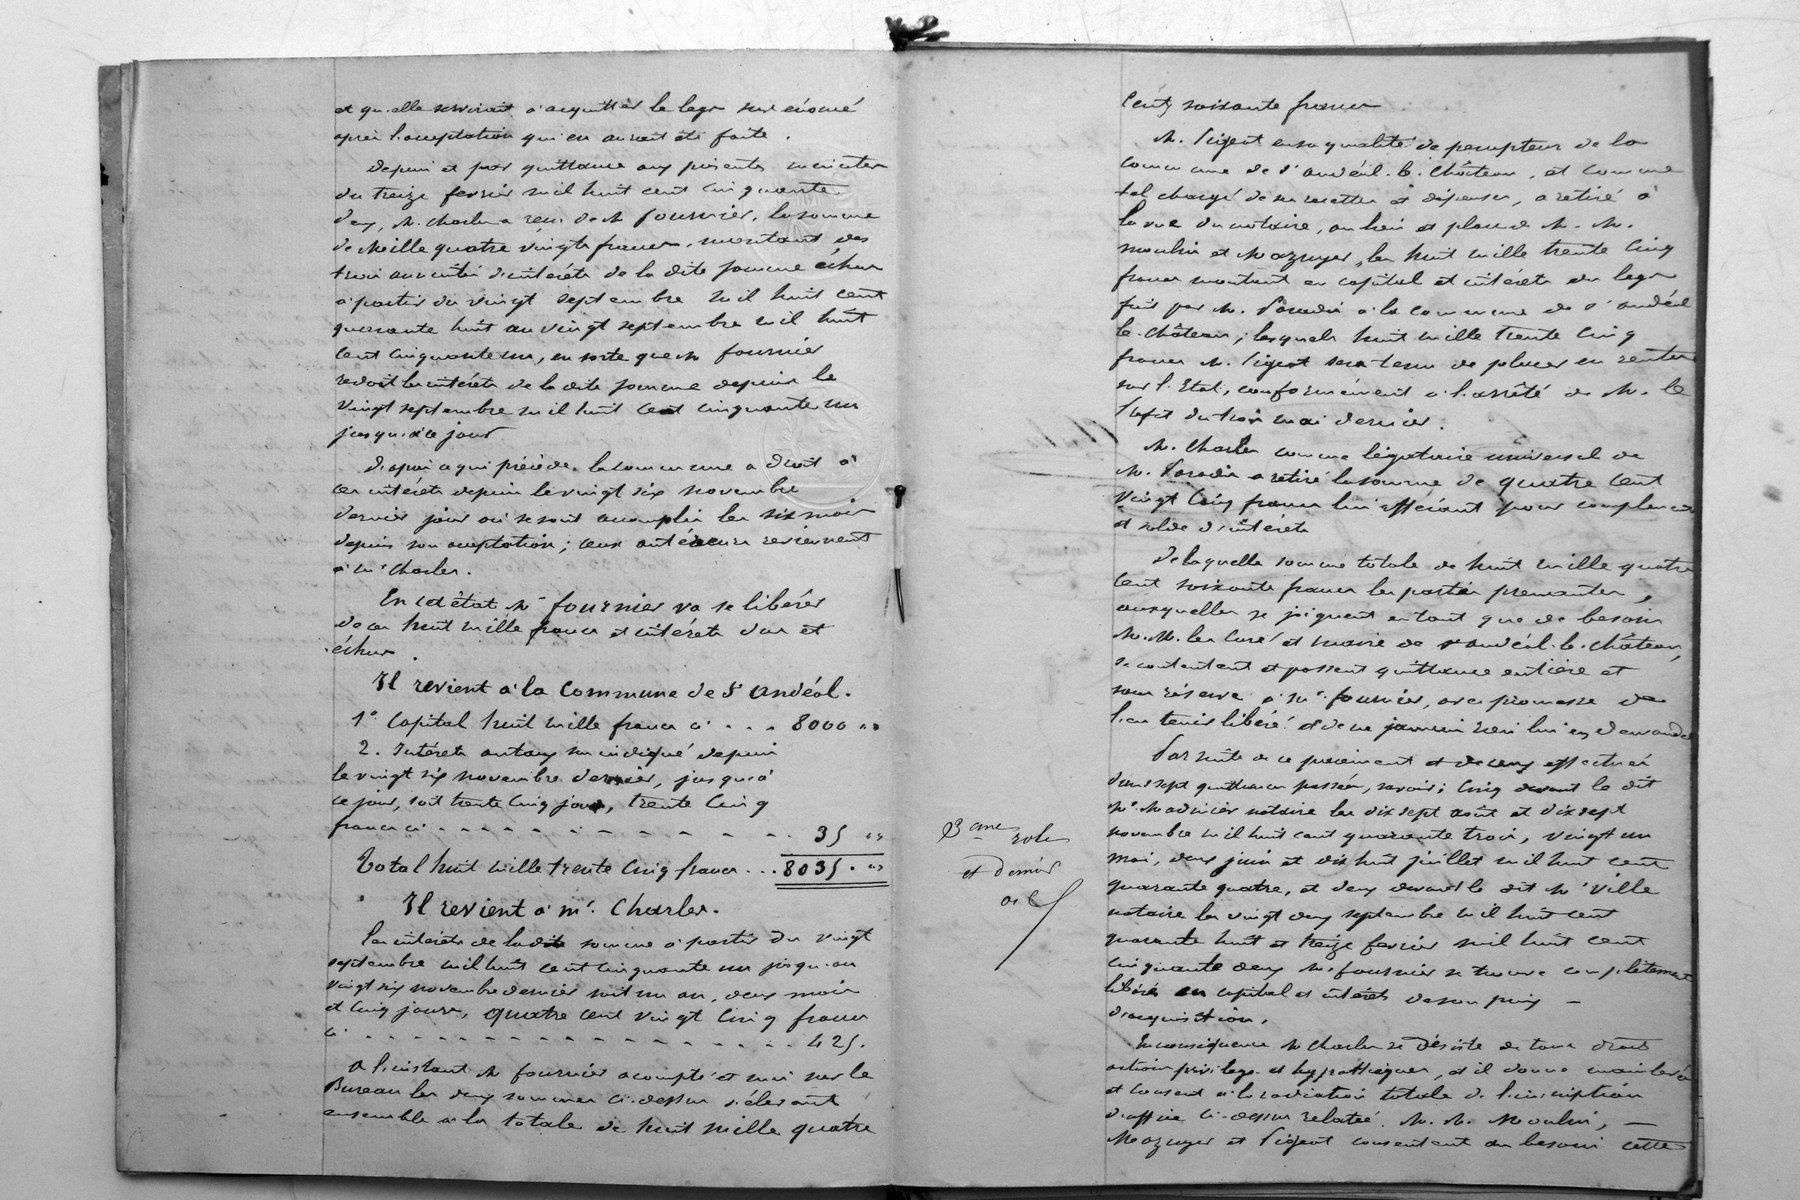 et qu'elle servirait à acquitter le legs sus énoncé
après l'acceptation qui en aurait été faite.
Depuis et par quittance aux présentes
du treize février mil huit cent cinquante
deux, M. Charles a reçu de M fournier, la somme
de Mille quatre vingts francs, montant des
trois annuités d'intérêts de la dite somme échus
à partir du vingt septembre mil huit cent
quarante huit au vingt septembre mil huit
cent cinquante un, en sorte que M fournier
redoit les intérêts de la dite somme depuis le
vingt septembre mil huit cent cinquante un
jusqu'à ce jour
D'après ce qui précède la commune a droit à
ces intérêts depuis le vingt six novembre
dernier jour où se sont accomplis les six mois
depuis son acceptation; ceux antérieurs reviennent
à Mr Charles.
En cet état Mr fournier va se libérer
de ces huit mille francs et intérêts dus et
échus.
Il revient à la Commune de St Andéol.
1° Capital huit mille francs ci . . . 8000 "
2. Intérêts au taux sus indiqué depuis
le vingt six novembre dernier, jusqu'à
ce jour, soit trente cinq jours, trente cinq
francs ci 35 "
Total huit mille trente cinq francs . . . 8035 . "
Il revient à Mr. Charles.
Les intérêts de la dite somme à partir du vingt
septembre mil huit cent cinquante un jusqu'au
vingt six novembre dernier soit un an, deux mois
et cinq jours, quatre cent vingt cinq francs
ci 425.
A l'instant M fournier a compté et mis sur le
Bureau les deux sommes ci-dessus s'élevant
ensemble à la totale de huit mille quatre
cents soixante francs
M. Pigeot en sa qualité de percepteur de la
commune de St andéol-le-Château, et comme
tel chargé de ses recettes et dépenses, a retiré à
la vue du notaire, au lieu et place de M. M.
Moulin et Mazuyer, les huit mille trente cinq
francs montant en capital et intérêts du legs
fait par M. Paradis à la commune de St andéol
le-Château; lesquels huit mille trente cinq
francs M. Pigeot sera tenu de placer en rentes
sur l'Etat, conformément à l'arrêté de M. le
Préfet du trois mai dernier.
M. Charles comme légataire universel de
M. Paradis a retiré la somme de quatre cent
vingt cinq francs lui afférant pour complément
et solde d'intérêts
De laquelle somme totale de huit mille quatre
cent soixante francs les parties prenantes,
auxquelles se joignent en tant que de besoin
M. M. les Curé et maire de St andéol-le-Château,
se contentent et passent quittance entière et
sans réserve à Mr. fournier, avec promesse de
l'en tenir libéré et de ne jamais rien lui en demander
Par suite de ce paiement et de ceux effectués
dans sept quittances passées, savoir; cinq devant le dit
Me. Madinier notaire les dix sept août et dix sept
novembre mil huit cent quarante trois, vingt un
mai, deux juin et dix huit juillet mil huit cent
quarante quatre, et deux devant le dit Me Ville
notaire les vingt deux septembre mil huit cent
quarante huit et treize février mil huit cent
cinquante deux M. fournier se trouve complètement
libéré en capital et intérêts de son prix —
d'acquisition.
En conséquence M Charles se désiste de tous droits
actions privilèges et hypothèques, et il donne mainlevée
et consent à la radiation totale de l'inscription
d'office ci-dessus relatée. M. M. Moulin, —
Mazuyer et Pigeot consentent au besoin cette
3 eme role
et dernier